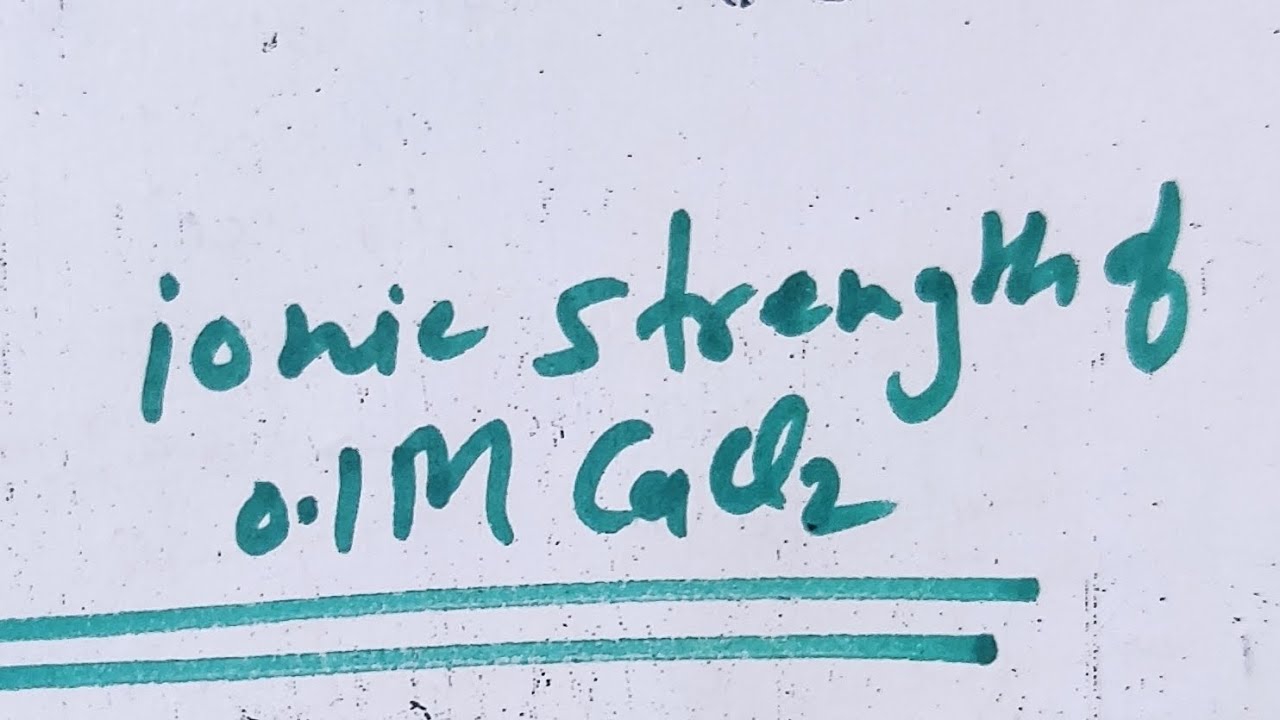 ionic strength of
0.1M CaCl2